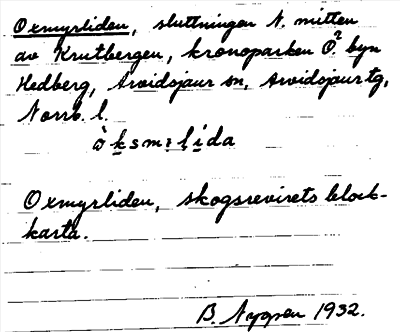 Oxmyrliden, sluttningen N. mitten
av Krutbergen, kronoparken O² byn
Hedberg, Arvidsjaur sn, Arvidsjaur tg,
Norrb. l.
òksmıḷida
Oxmyrliden, skogsrevirets block-
karta.
B. Nygren 1932.